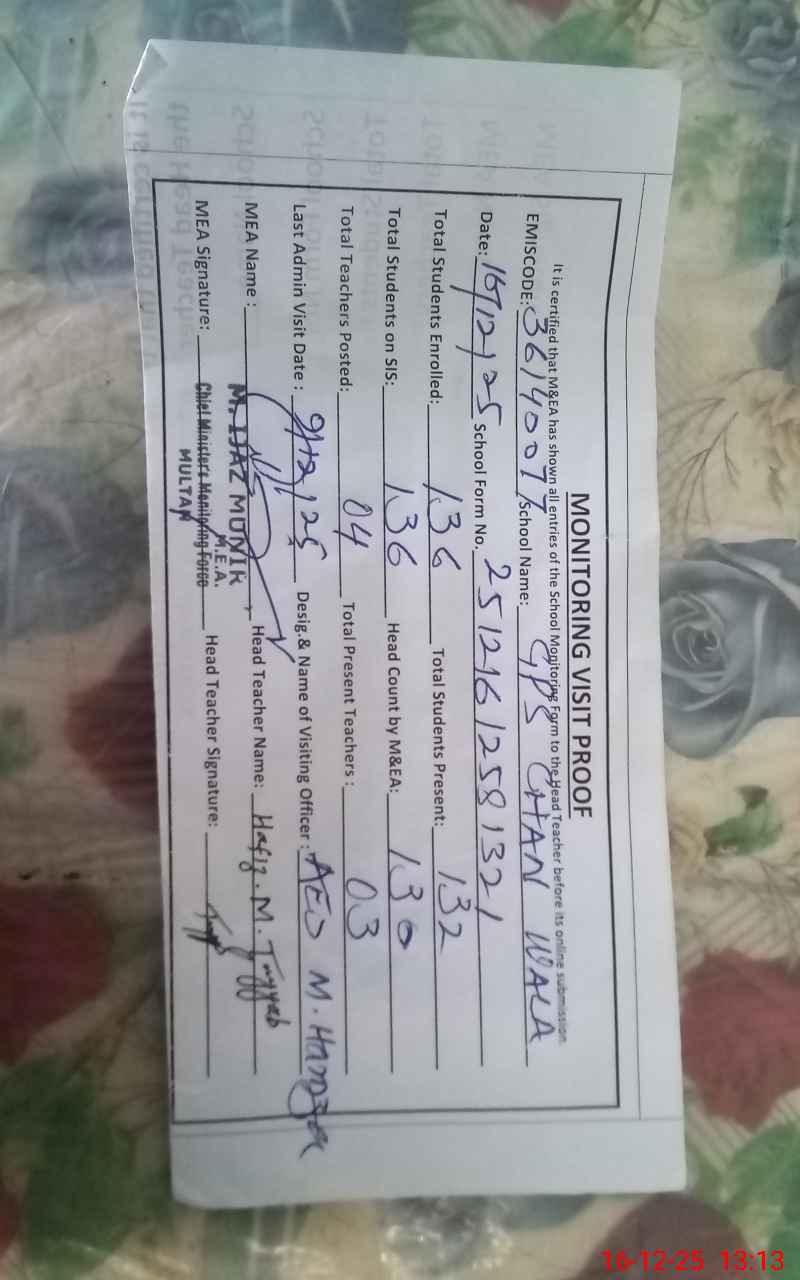 MONITORING VISIT PROOF
It is certified that M&EA has shown all entries of the School Monitoring Form to the Head Teacher before its online submission.
EMISCODE: 36140077 School Name: GPS CHAN WALA
Date: 16/12/25 School Form No. 251216125813 21
Total Students Enrolled: 136 Total Students Present: 132
Total Students on SIS: 136 Head Count by M&EA: 130
Total Teachers Posted: 04 Total Present Teachers : 03
Last Admin Visit Date : 9/12/25 Desig.& Name of Visiting Officer : AEO M. Hamza
MEA Name : M. IJAZ MUNIR Head Teacher Name: Hafiz. M. Tayyab
M.E.A.
MEA Signature: Chief Ministers Monitoring Force Head Teacher Signature:
MULTAN
16-12-25 13:13